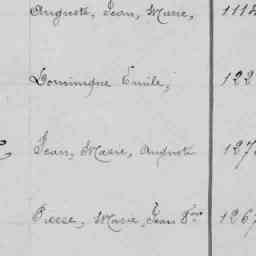 Auguste, Jean, Marie, 111
Dominique Emile, 122
Jean, Marie, Auguste 127
Pierre, Marie, Jean Bte 1267